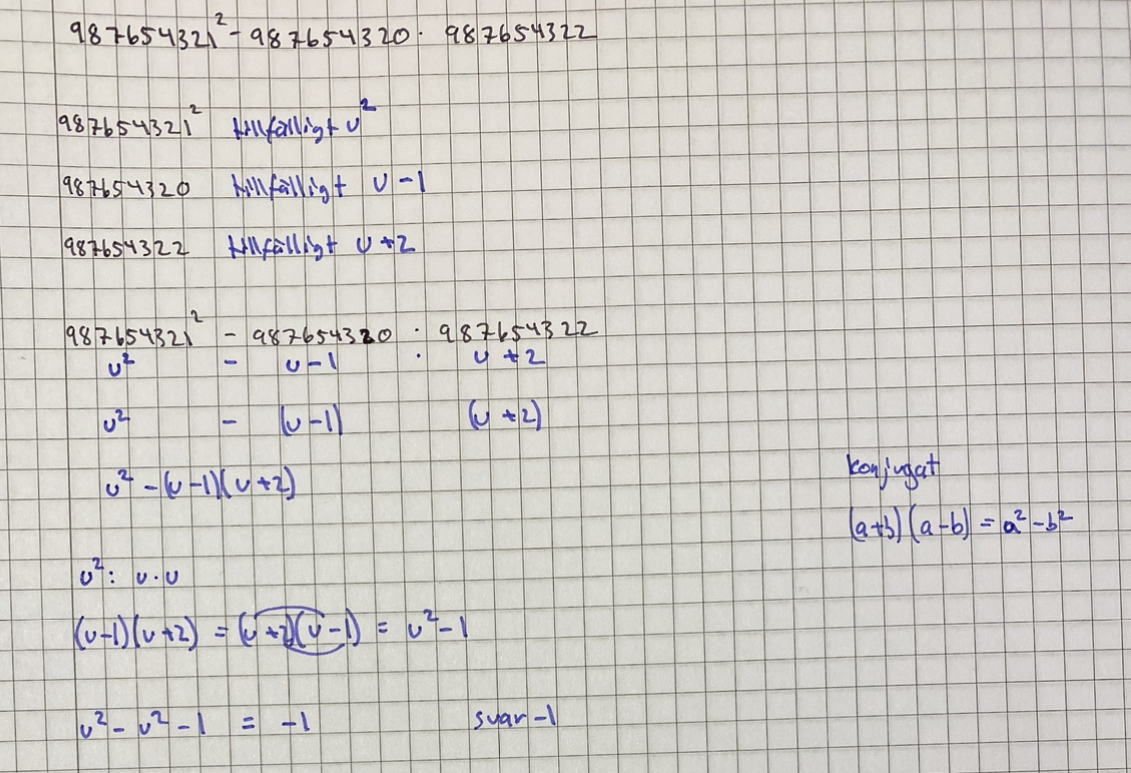 987654321² - 987654320 · 987654322
987654321² tillfälligt u²
987654320 tillfälligt u-1
987654322 tillfälligt u+2
987654321² - 987654320 · 987654322
u² - u-1 · u+2
u² - (u-1) (u+2)
u² - (u-1)(u+2)
konjugat
(a+b)(a-b) = a² - b²
u²: u·u
(u-1)(u+2) = (u+2)(u-1) = u² - 1
u² - u² - 1 = -1 svar -1